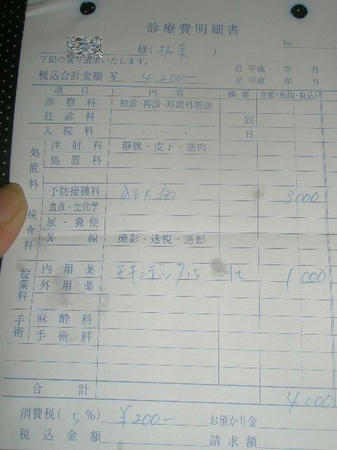 診療費明細書
様
No
下記の通り請求いたします。
自平成 年 月
税込合計金額 ¥ 4,200-
至平成 年 月
項目 内容 摘要 金額(税抜・税込)
診察料 初診・再診・時間外診
往診料 回
入院料 日
処置料
注射料 静脈・皮下・筋肉
処置料
予防接種料 3000
検査料
血液・生化学
尿・糞便
X線 撮影・透視・造影
投薬料
内用薬 1,000
外用薬
手術
麻酔料
手術料
合計 4,000
消費税(5%) ¥200- お預かり金
税込金額 請求額